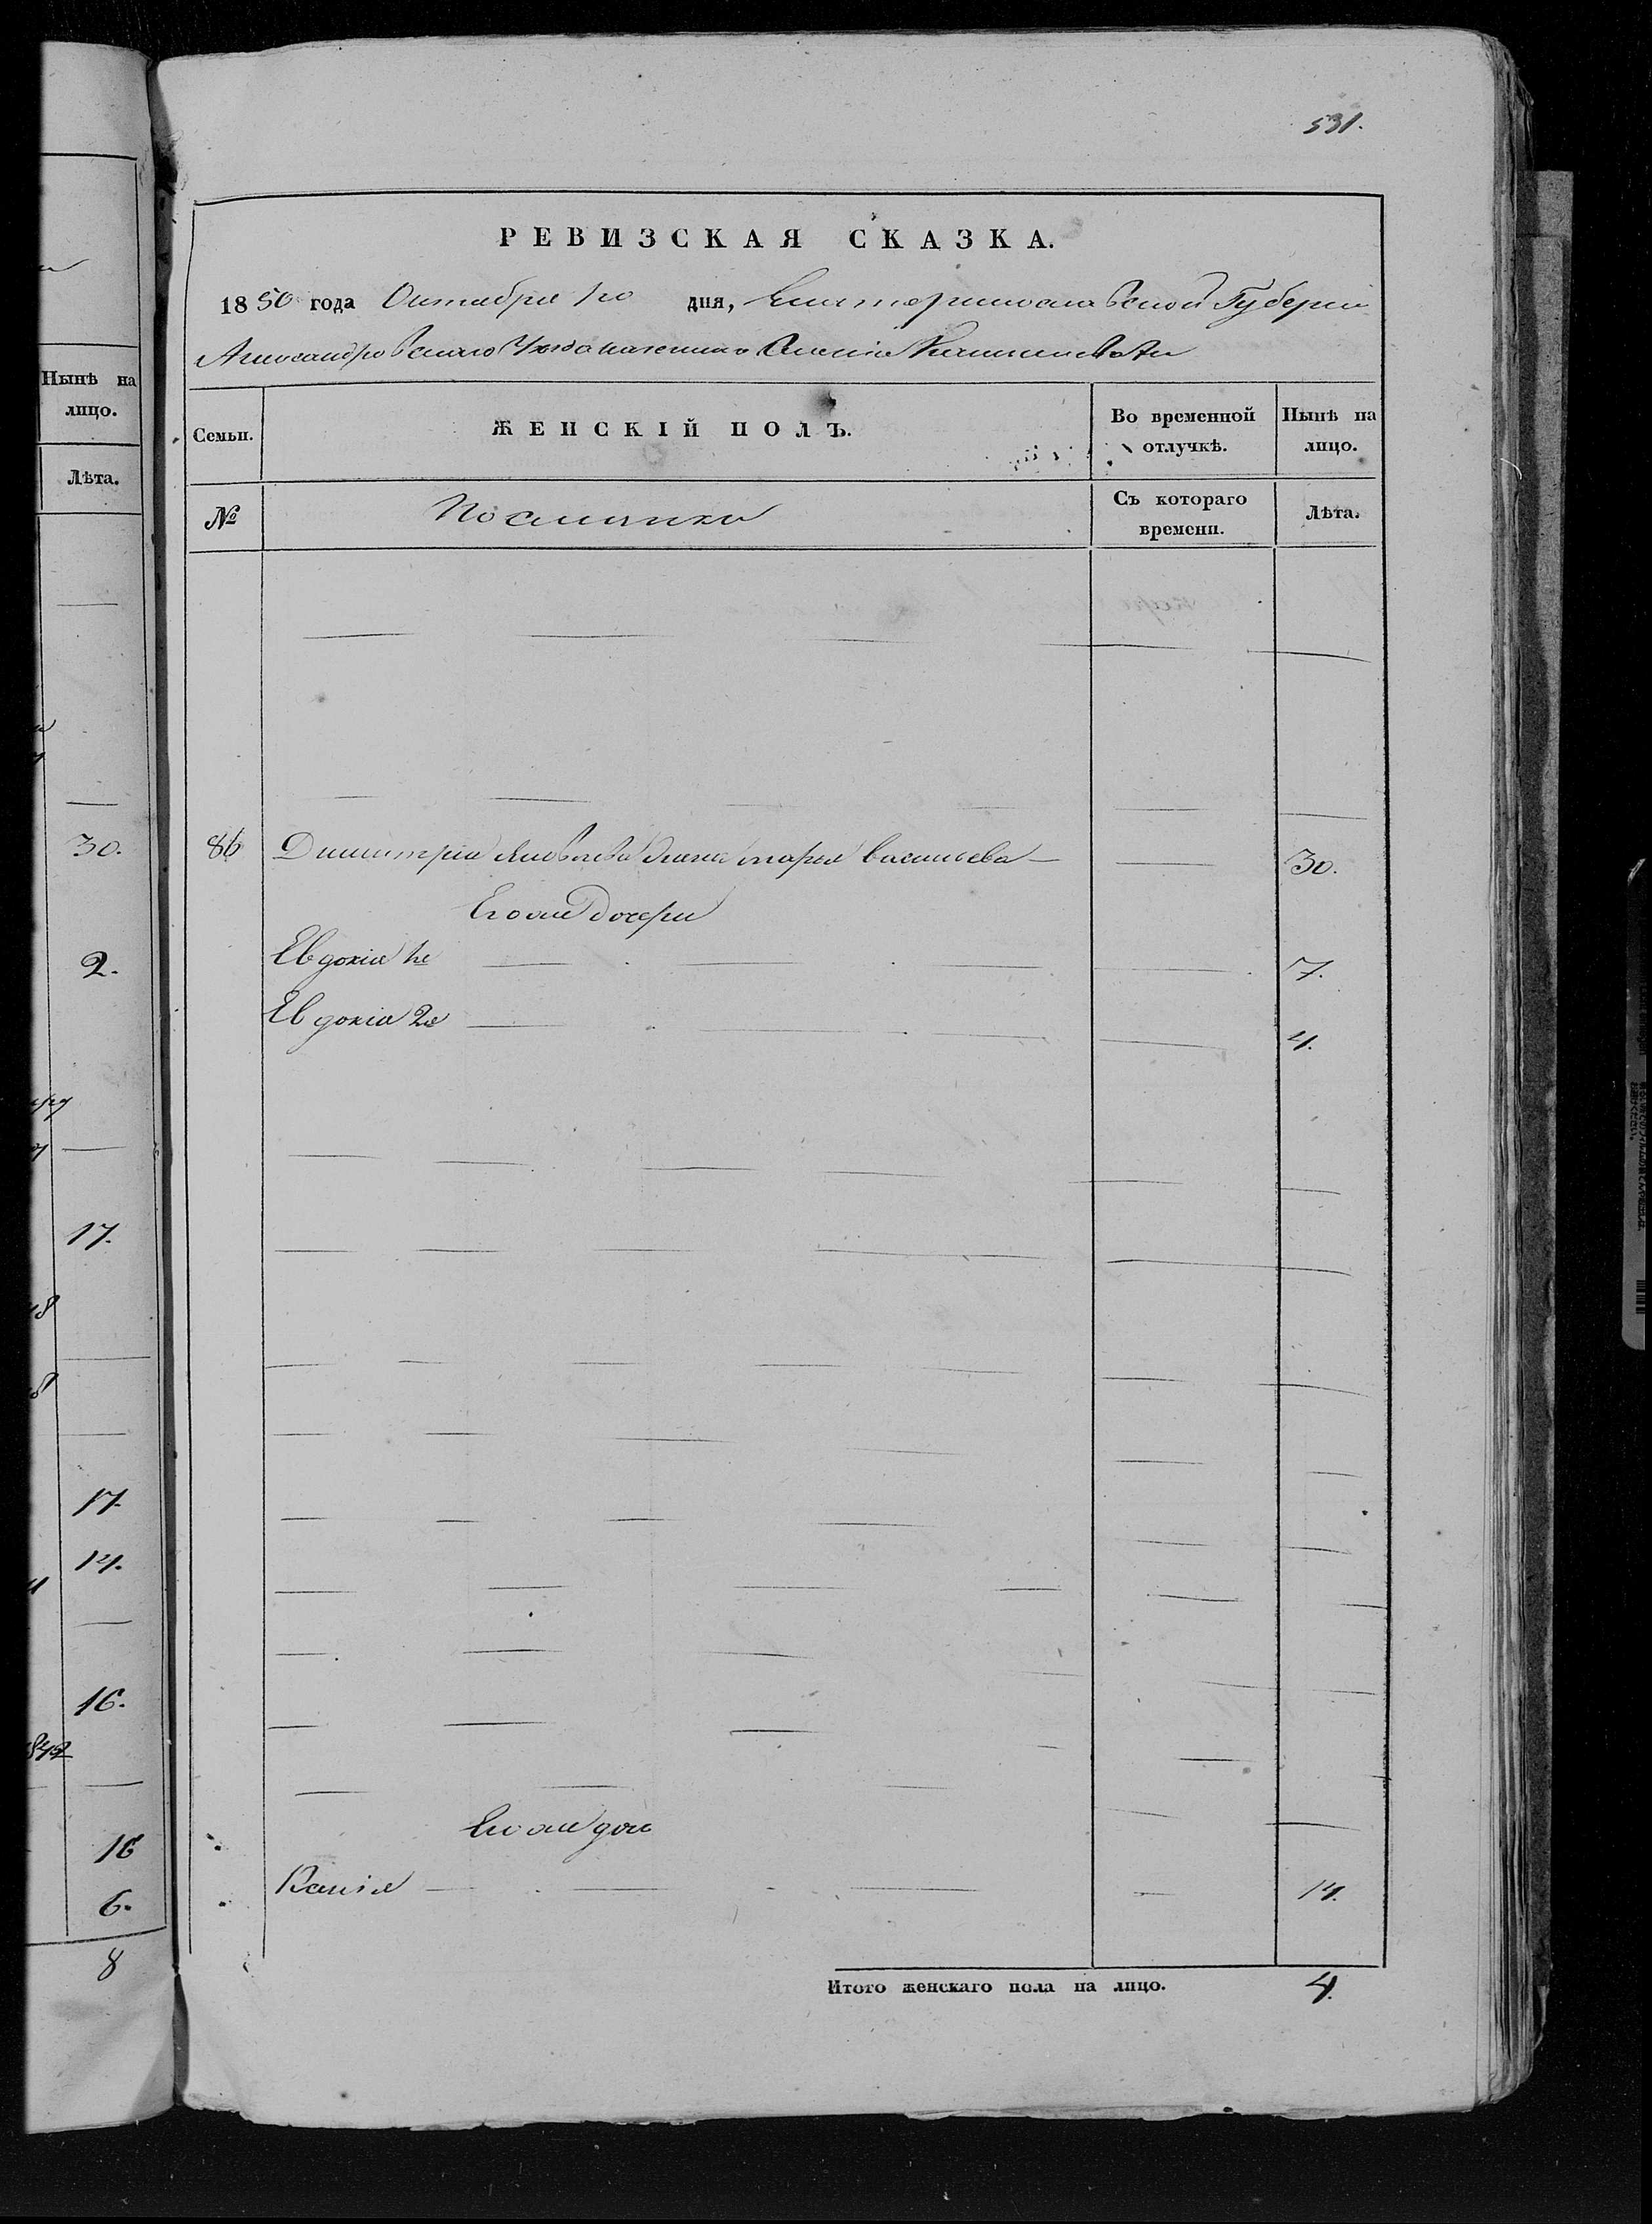 531.
РЕВИЗСКАЯ СКАЗКА.
1850 года Октября 1го дня, Екатеринославской Губерніи
Александровскаго Уѣзда казеннаго Селенія
Семьи. ЖЕНСКІЙ ПОЛЪ. Во временной отлучкѣ. Нынѣ на лицо.
№ Съ котораго времени. Лѣта.
86 Димитрія Яковлева жена Марья Васильева 30.
Его же дочери
Евдокія 1я 7.
Евдокія 2я 4.
Его же доч
14.
Итого женскаго пола на лицо. 4.
Нынѣ на
лицо.
Лѣта.
30.
2.
17.
17.
14.
16.
1842
16
6.
8